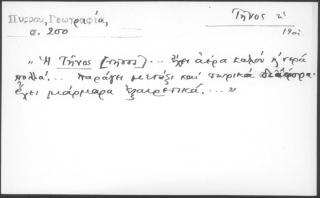 Πύρρου, Γεωγραφία,
σ. 250
Τῆνος
19
„Ἡ Τῆνος (νῆσος) ... ἔχει ἀέρα καλὸν κ' νερὰ
πολλά. ... παράγει μετάξι καὶ τυρικὰ διάφορα
ἔχει μάρμαρα ἐξαιρετικά. ... "